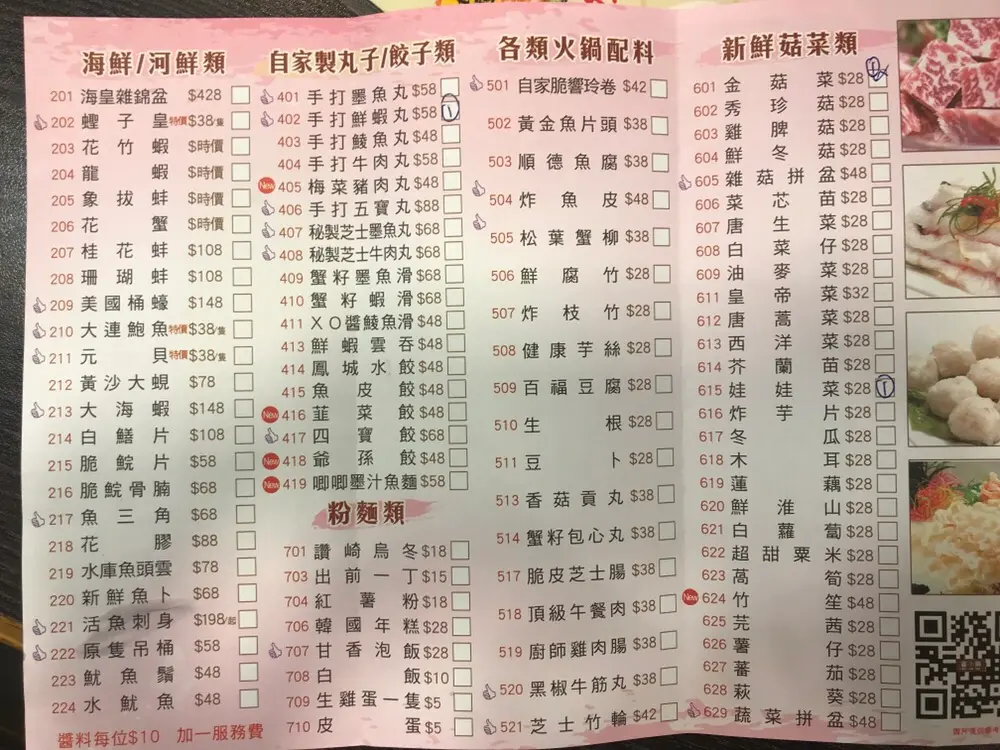 海鮮/河鮮類
201 海皇雜錦盆 $428
202 蟶子皇 特價$38/隻
203 花竹蝦 $時價
204 龍蝦 $時價
205 象拔蚌 $時價
206 花蟹 $時價
207 桂花蚌 $108
208 珊瑚蚌 $108
209 美國桶蠔 $148
210 大連鮑魚 特價$38/隻
211 元貝 特價$38/隻
212 黃沙大蜆 $78
213 大海蝦 $148
214 白鱔片 $108
215 脆鯇片 $58
216 脆鯇骨腩 $68
217 魚三角 $68
218 花膠 $88
219 水庫魚頭雲 $78
220 新鮮魚卜 $68
221 活魚刺身 $198/起
222 原隻吊桶 $58
223 魷魚鬚 $48
224 水魷魚 $48
醬料每位$10 加一服務費
自家製丸子/餃子類
401 手打墨魚丸 $58
402 手打鮮蝦丸 $58 1
403 手打鯪魚丸 $48
404 手打牛肉丸 $58
New 405 梅菜豬肉丸 $48
406 手打五寶丸 $88
407 秘製芝士墨魚丸 $68
408 秘製芝士牛肉丸 $68
409 蟹籽墨魚滑 $68
410 蟹籽蝦滑 $68
411 XO醬鯪魚滑 $48
413 鮮蝦雲吞 $48
414 鳳城水餃 $48
415 魚皮餃 $48
New 416 韮菜餃 $48
417 四寶餃 $68
New 418 爺孫餃 $48
New 419 唧唧墨汁魚麵 $58
粉麵類
701 讚崎烏冬 $18
703 出前一丁 $15
704 紅薯粉 $18
706 韓國年糕 $28
707 甘香泡飯 $28
708 白飯 $10
709 生雞蛋一隻 $5
710 皮蛋 $5
各類火鍋配料
501 自家脆響玲卷 $42
502 黃金魚片頭 $38
503 順德魚腐 $38
504 炸魚皮 $48
505 松葉蟹柳 $38
506 鮮腐竹 $28
507 炸枝竹 $28
508 健康芋絲 $28
509 百福豆腐 $28
510 生根 $28
511 豆卜 $28
513 香菇貢丸 $38
514 蟹籽包心丸 $38
517 脆皮芝士腸 $38
518 頂級午餐肉 $38
519 廚師雞肉腸 $38
520 黑椒牛筋丸 $38
521 芝士竹輪 $42
新鮮菇菜類
601 金菇菜 $28
602 秀珍菇 $28
603 雞脾菇 $28
604 鮮冬菇 $28
605 雜菇拼盆 $48
606 菜芯苗 $28
607 唐生菜 $28
608 白菜仔 $28
609 油麥菜 $28
611 皇帝菜 $32
612 唐蒿菜 $28
613 西洋菜 $28
614 芥蘭苗 $28
615 娃娃菜 $28 1
616 炸芋片 $28
617 冬瓜 $28
618 木耳 $28
619 蓮藕 $28
620 鮮淮山 $28
621 白蘿蔔 $28
622 超甜粟米 $28
623 萵筍 $28
New 624 竹笙 $48
625 芫茜 $28
626 薯仔 $28
627 蕃茄 $28
628 萩葵 $28
629 蔬菜拼盆 $48